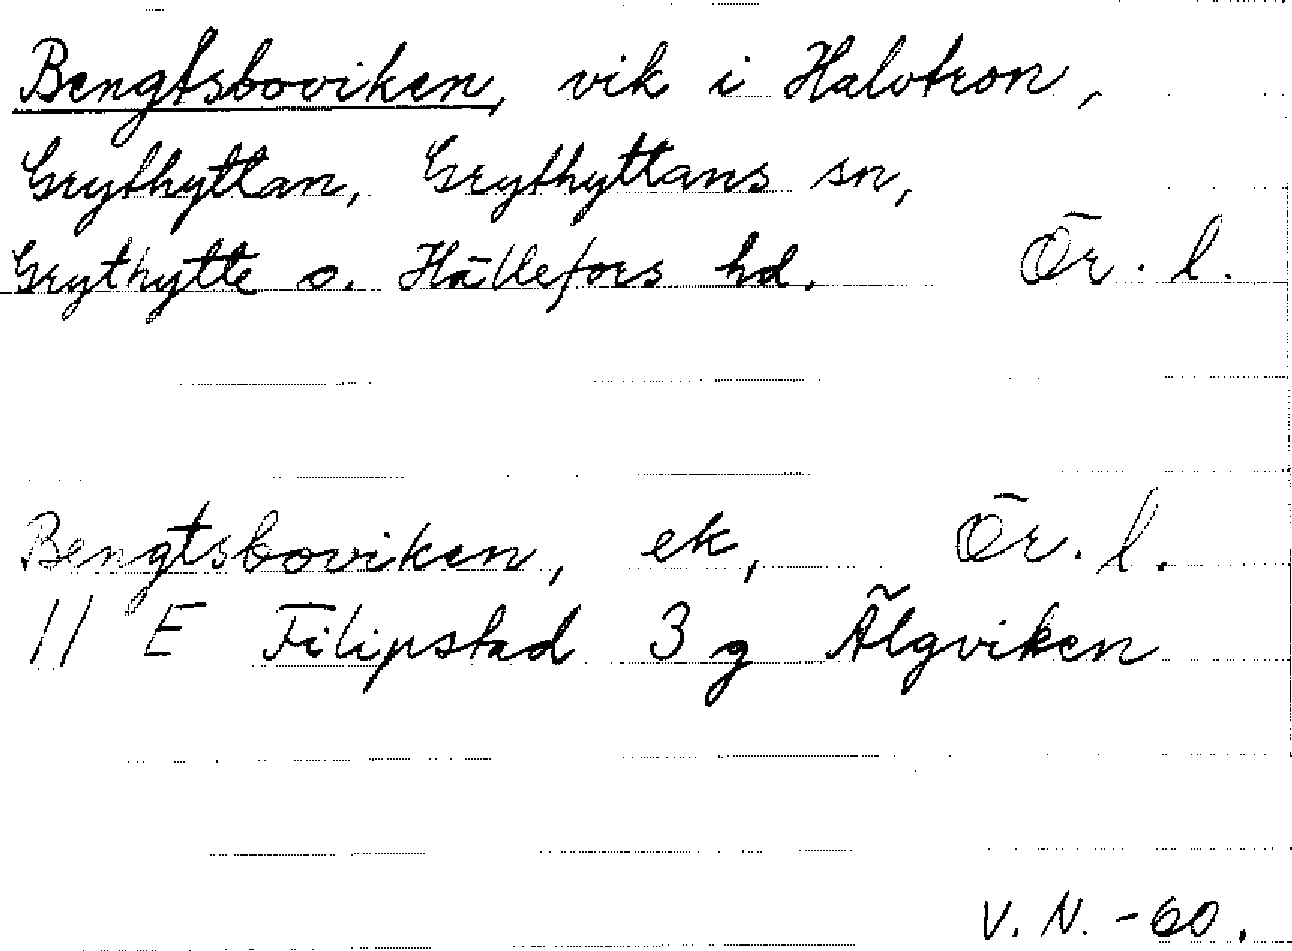 Bengtsboviken, vik i Halvtron,
Grythyttan, Grythyttans sn,
Grythytte o. Hällefors hd. Ör. l.
Bengtsboviken, ek, Ör. l.
11 E Filipstad 3 g Älgviken
V. N. -60.